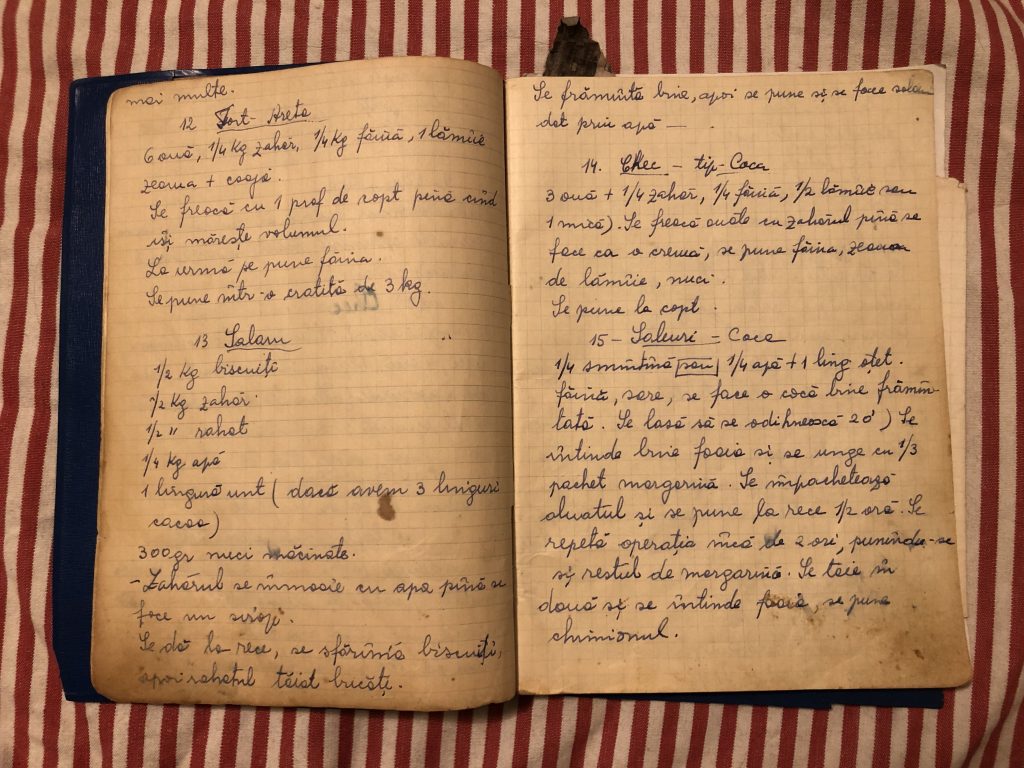 mai multe.
12 Tort - Areta
6 ouă, 1/4 kg zahăr, 1/4 kg făină, 1 lămîie
zeama + coajă.
Se freacă cu 1 praf de copt pînă cînd
își mărește volumul.
La urmă se pune făina.
Se pune într-o cratită de 3 kg.
13 Salam
1/2 kg biscuiți
1/2 kg zahăr.
1/2 " rahat
1/4 kg apă
1 lingură unt (dacă avem 3 linguri
cacao)
300gr nuci măcinate.
- Zahărul se înmoaie cu apa pînă se
face un sirop.
Se dă la rece, se sfărîmă biscuiții,
apoi rahatul tăiat bucăți.
Se frămîntă bine, apoi se pune și se face salam
dat prin apă —
14. Chec - tip - Coca
3 ouă + 1/4 zahăr, 1/4 făină, 1/2 lămîie sau
1 mică). Se freacă ouăle cu zahărul pînă se
face ca o cremă, se pune făina, zeama
de lămîie, nuci.
Se pune la copt.
15 - Saleuri = Coca
1/4 smîntînă sau 1/4 apă + 1 ling oțet.
făină, sare, se face o cocă bine frămîn-
tată. Se lasă să se odihnească 20') Se
întinde bine foaia și se unge cu 1/3
pachet margarină. Se împachetează
aluatul și se pune la rece 1/2 oră. Se
repetă operația încă de 2 ori, punîndu-se
și restul de margarină. Se taie în
două și se întinde foaia, se pune
chimionul.